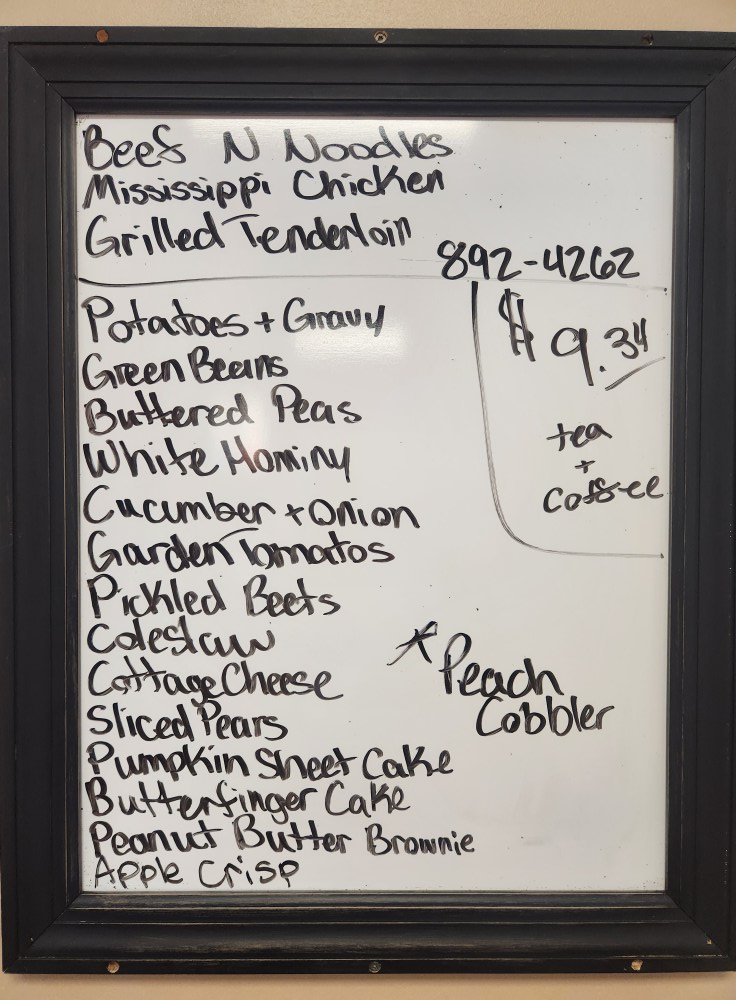 Beef N Noodles
Mississippi Chicken
Grilled Tenderloin
892-4262
$9.34
tea
+
coffee
Potatoes + Gravy
Green Beans
Buttered Peas
White Hominy
Cucumber + Onion
Garden Tomatos
Pickled Beets
Coleslaw
Cottage Cheese
Sliced Pears
Pumpkin Sheet Cake
Butterfinger Cake
Peanut Butter Brownie
Apple Crisp
*Peach
Cobbler